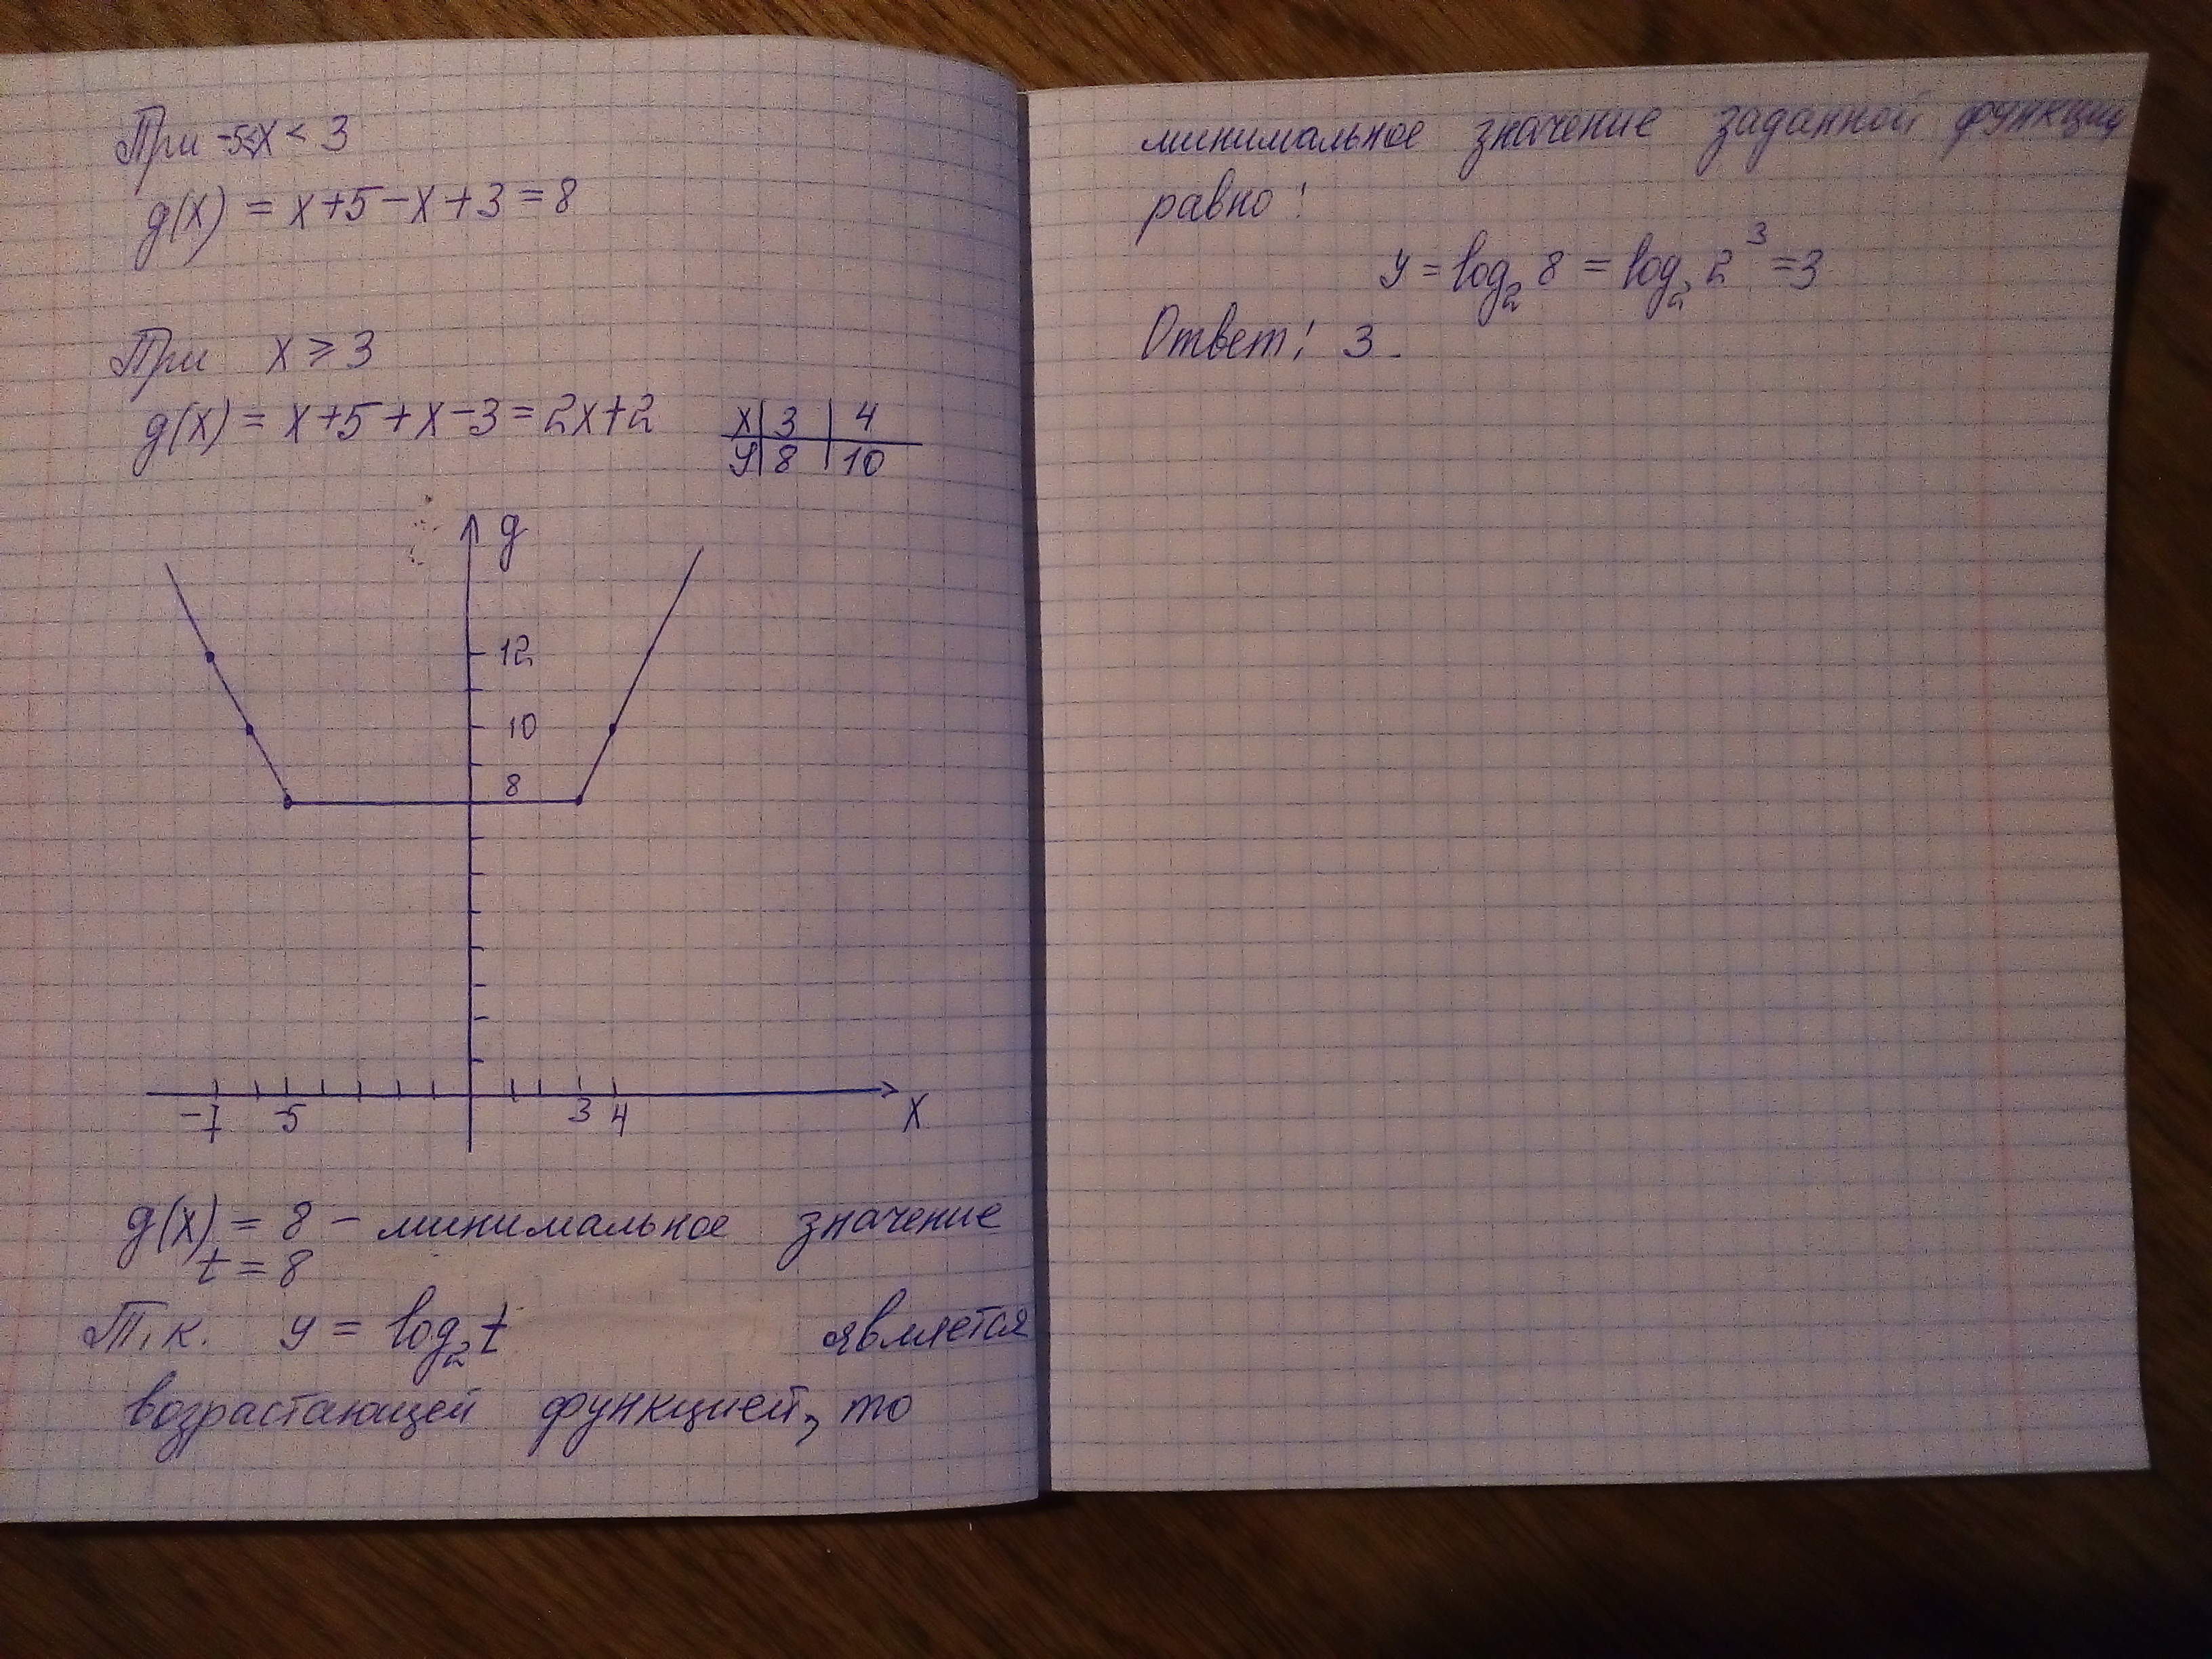 При -5≤x < 3
g(x) = x+5-x+3=8
При x ≥ 3
g(x) = x+5+x-3=2x+2
x 3 4
y 8 10
g
12
10
8
-7 -5 3 4 x
g(x) = 8 - минимальное значение
t = 8
Т.к. y = log₂t является
возрастающей функцией, то
минимальное значение заданной функции
равно:
y = log₂ 8 = log₂ 2³ =3
Ответ: 3.